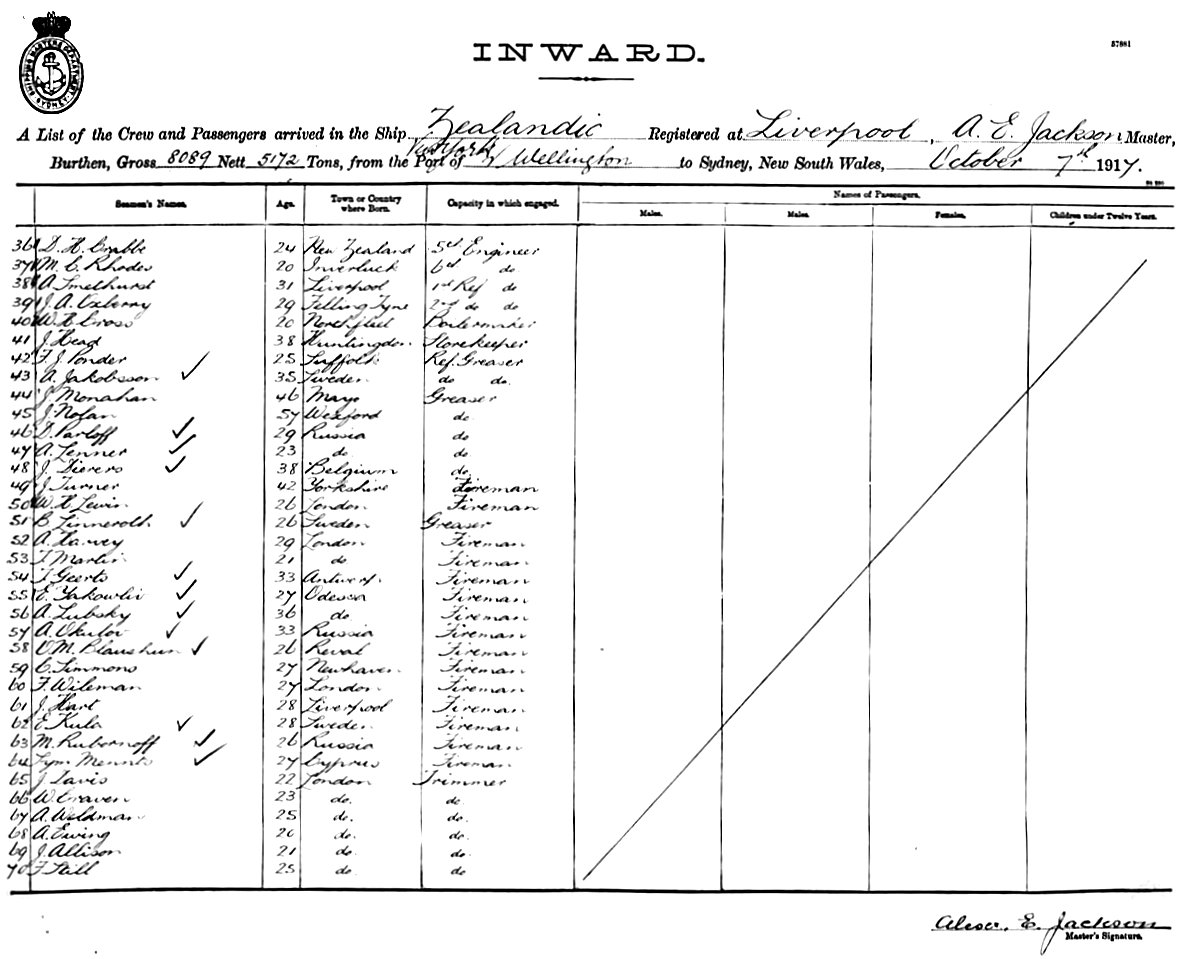 SHIPPING MASTERS DEPARTMENT SYDNEY
INWARD.
57881
A List of the Crew and Passengers arrived in the Ship Zealandic Registered at Liverpool, A. E. Jackson Master,
Burthen, Gross 8089 Nett 5172 Tons, from the Port of New York V Wellington to Sydney, New South Wales, October 7th 1917.
Seamen's Names. Age. Town or Country where Born. Capacity in which engaged. Names of Passengers.
Males. Males. Females. Children under Twelve Years.
36 D. H. Crabbe 24 New Zealand 5th Engineer
37 M. C. Rhodes 20 Inverluck 6th do
38 A Smethurst 31 Liverpool 1st Ref do
39 J. A. Oxberry 29 Felling Tyne 2nd do do
40 W. H. Cross 20 Northfleet Boilermaker
41 J. Head 38 Huntingdon Storekeeper
42 F. J. Ponder 25 Suffolk Ref. Greaser
43 A. Jakobsson 35 Sweden do do.
44 J. Monahan 46 Mayo Greaser
45 J. Nolan 57 Wexford do
46 D. Parloff 29 Russia do
47 A. Lenner 23 do. do
48 J. Dierers 38 Belgium do.
49 J. Turner 42 Yorkshire Fireman
50 W. H. Lewin 26 London Fireman
51 B Linneroth 26 Sweden Greaser
52 A. Harvey 29 London Fireman
53 T. Martin 21 do Fireman
54 T. Geerts 33 Antwerp. Fireman
55 E. Yakowliv 27 Odessa Fireman
56 A. Lubsky 36 do. Fireman
57 A. Okulov 33 Russia Fireman
58 O. M. Blaushun 26 Reval Fireman
59 C. Simmons 27 Newhaven Fireman
60 F. Wileman 27 London Fireman
61 J. Hart 28 Liverpool Fireman
62 E. Kula 28 Sweden Fireman
63 M. Rubornoff 26 Russia Fireman
64 Sym Mennts 27 Cyprus Fireman
65 J. Davis 22 London Trimmer
66 W. Craven 23 do. do
67 A. Weldman 25 do. do.
68 A. Ewing 20 do. do.
69 J. Allison 21 do. do
70 F. Still 25 do. do
Alexr. E. Jackson
Master's Signature.